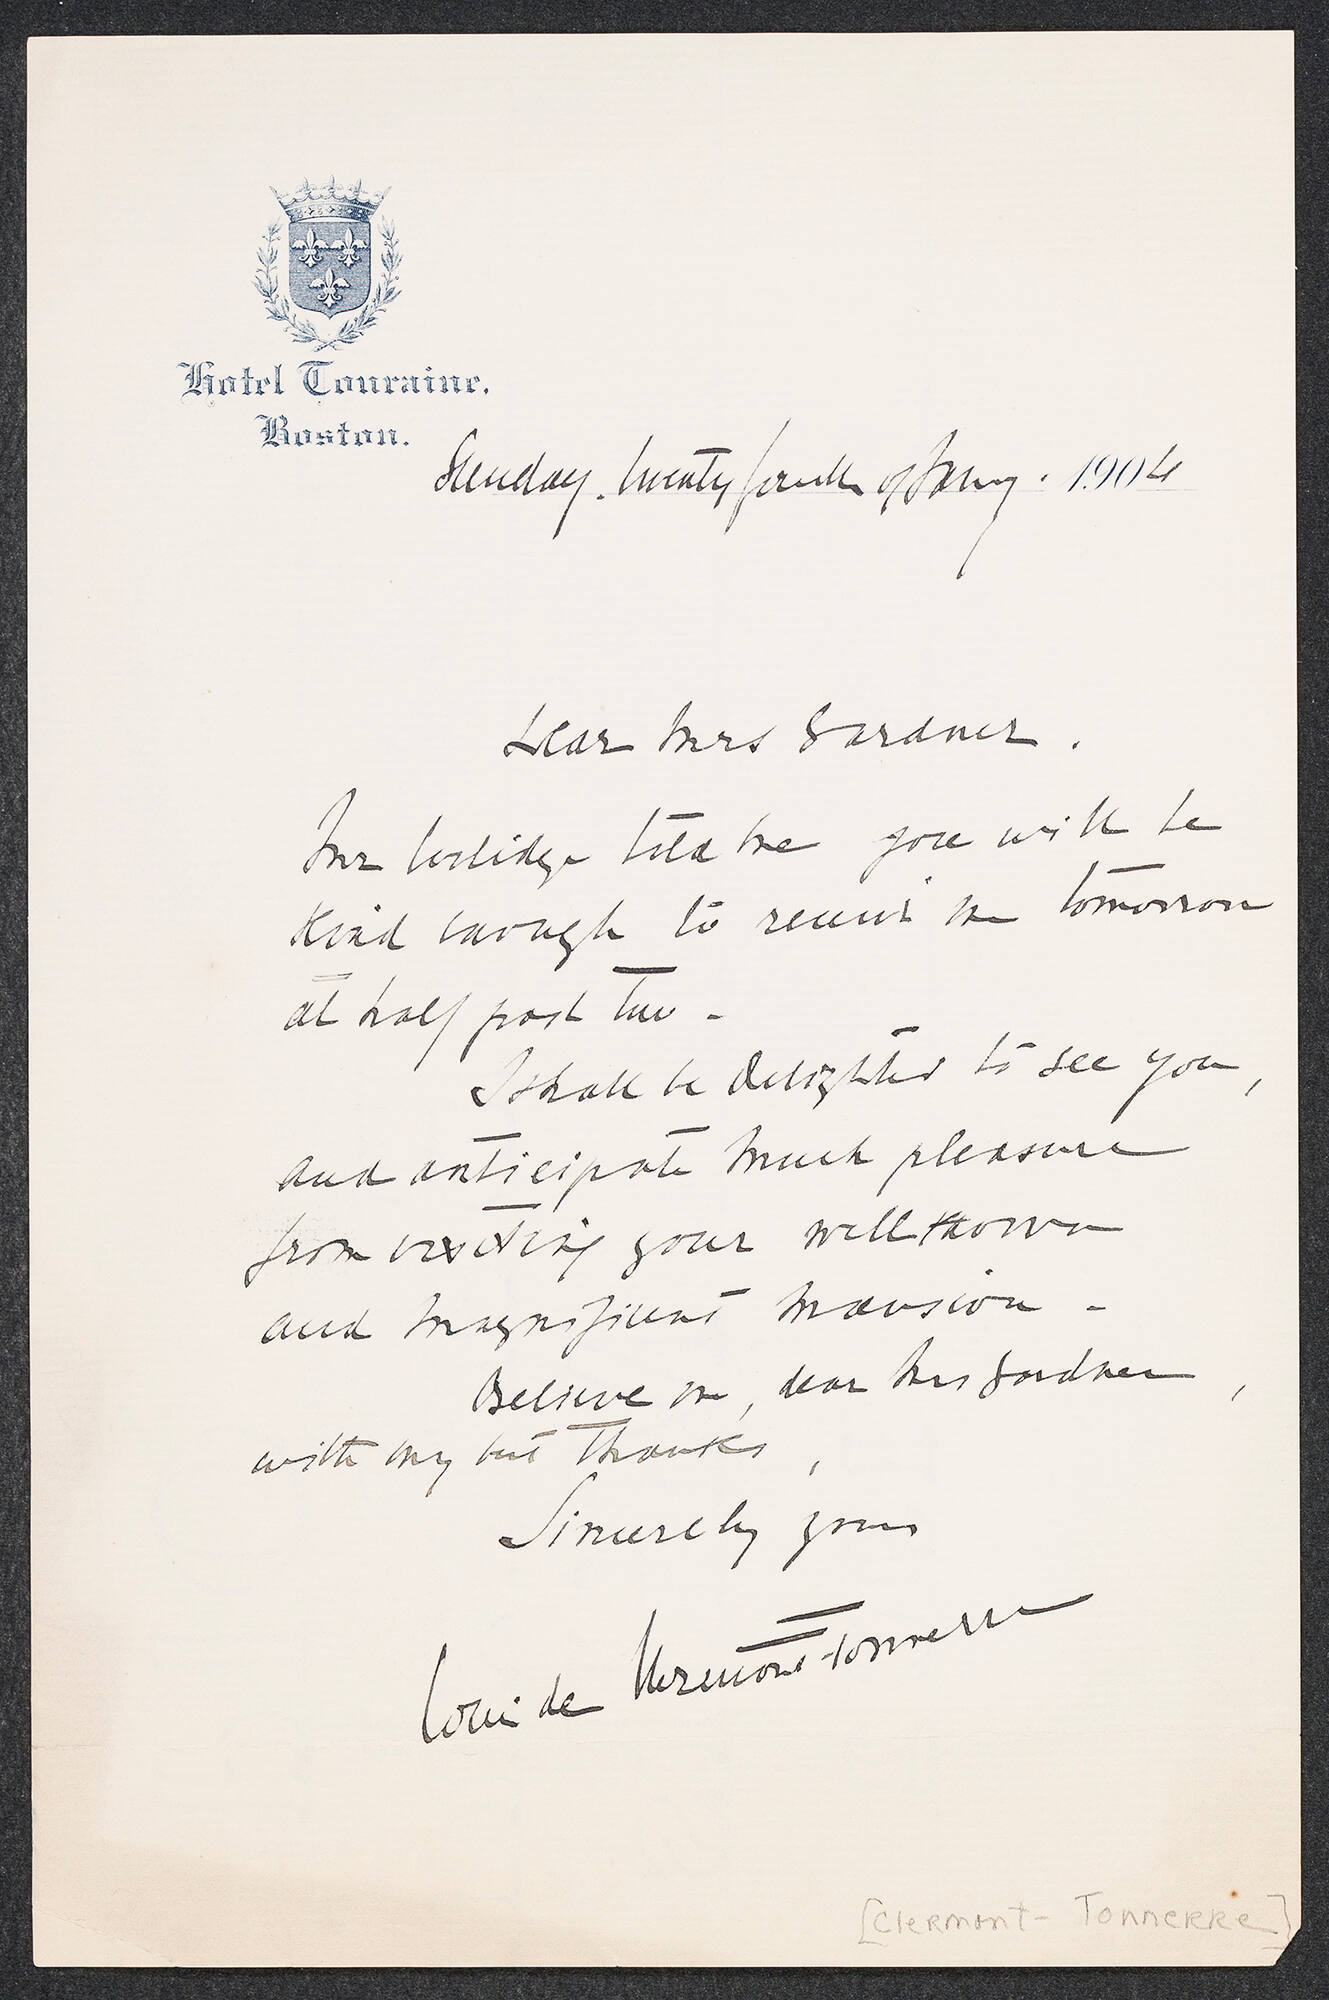 Hotel Touraine.
Boston.
Sunday. twenty fourth of January. 1904
Dear Mrs Gardner.
Mr Coolidge told me you will be
kind enough to receive me tomorrow
at half past two -
I shall be delighted to see you,
and anticipate much pleasure
from visiting your well known
and magnificent mansion -
Believe me, dear Mrs Gardner,
with my best thanks,
Sincerely yours
Louis de Clermont-Tonnerre
[Clermont- Tonnerre]